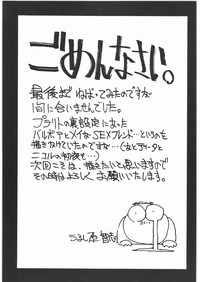 ごめんなさい。
最後までねばってみたのですが
間に合いませんでした。
プラリトの裏設定になった
バルボアとメイな SEXフレンド…というのを
描きかけていたのですが…(あとアリータと
ニコルの初夜も…)
次回こそは、描きたいと思いますので
その時はよろしくお願いいたします。
うるし原 智志